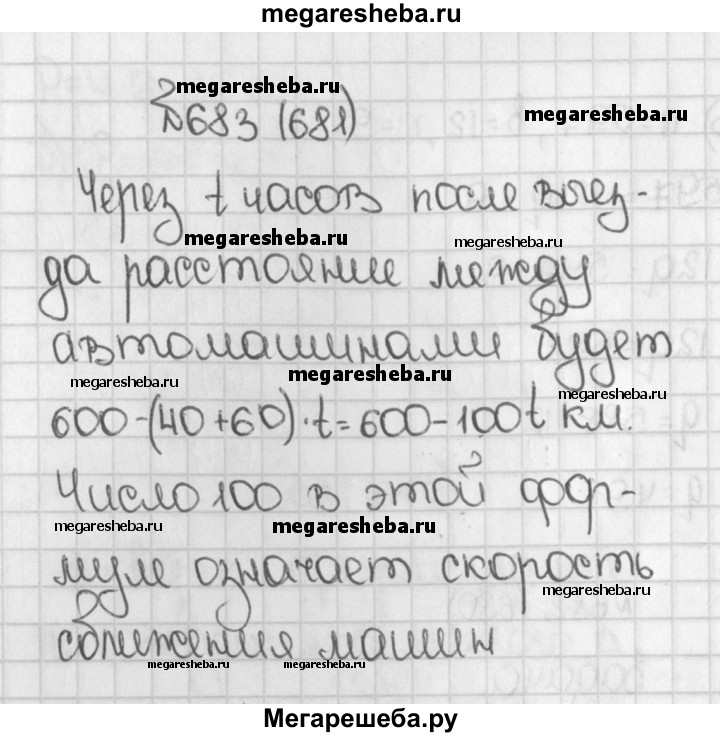 megaresheba.ru
megaresheba.ru
megaresheba.ru
№683 (681)
Через t часов после выез-
megaresheba.ru
megaresheba.ru
да расстояние между
автомашинами будет
megaresheba.ru
megaresheba.ru
megaresheba.ru
600-(40+60)·t=600-100t км.
Число 100 в этой фор-
megaresheba.ru
megaresheba.ru
муле означает скорость
megaresheba.ru
сближения машин
megaresheba.ru
megaresheba.ru
Мегарешеба.ру